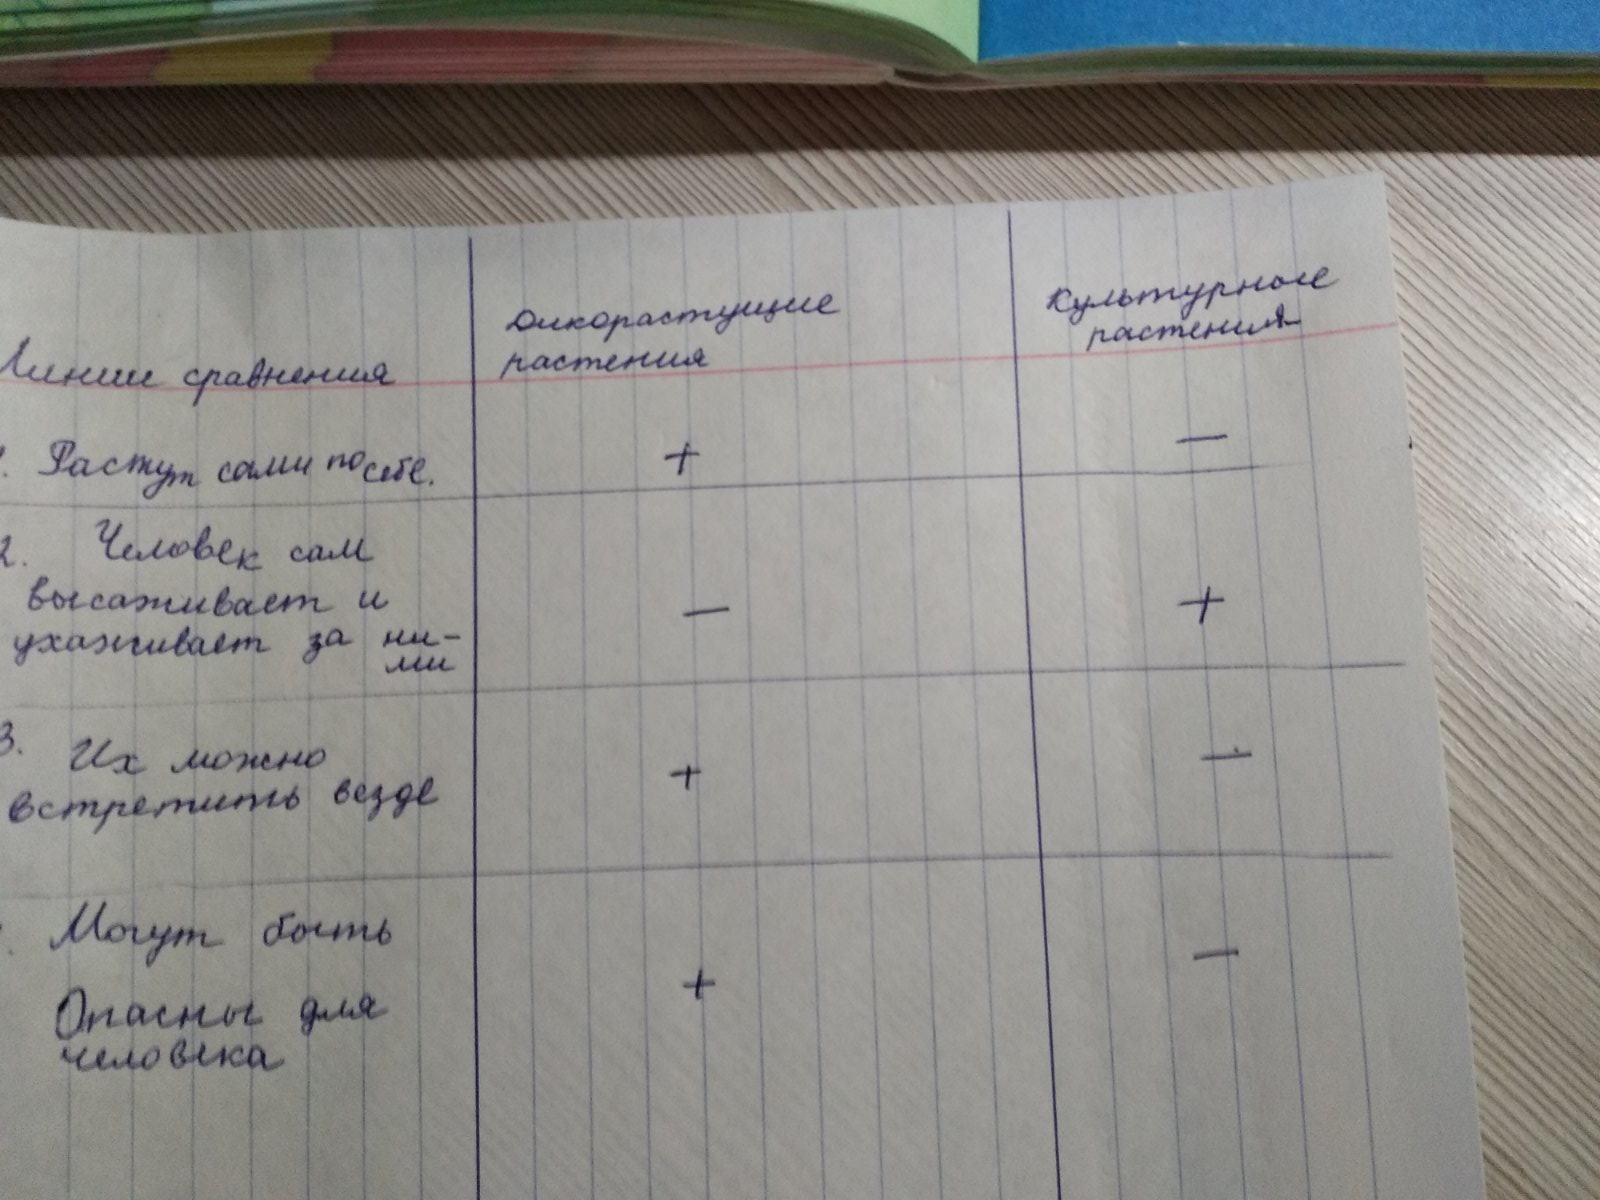 Линии сравнения
Дикорастущие
растения
Культурные
растения
1. Растут сами по себе.
+
—
2. Человек сам
высаживает и
ухаживает за ни-
ми
—
+
3. Их можно
встретить везде
+
—
Могут быть
Опасны для
человека
+
—